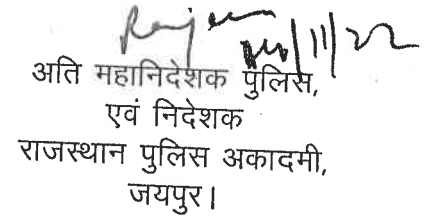 /11/22
अति महानिदेशक पुलिस,
एवं निदेशक
राजस्थान पुलिस अकादमी,
जयपुर।